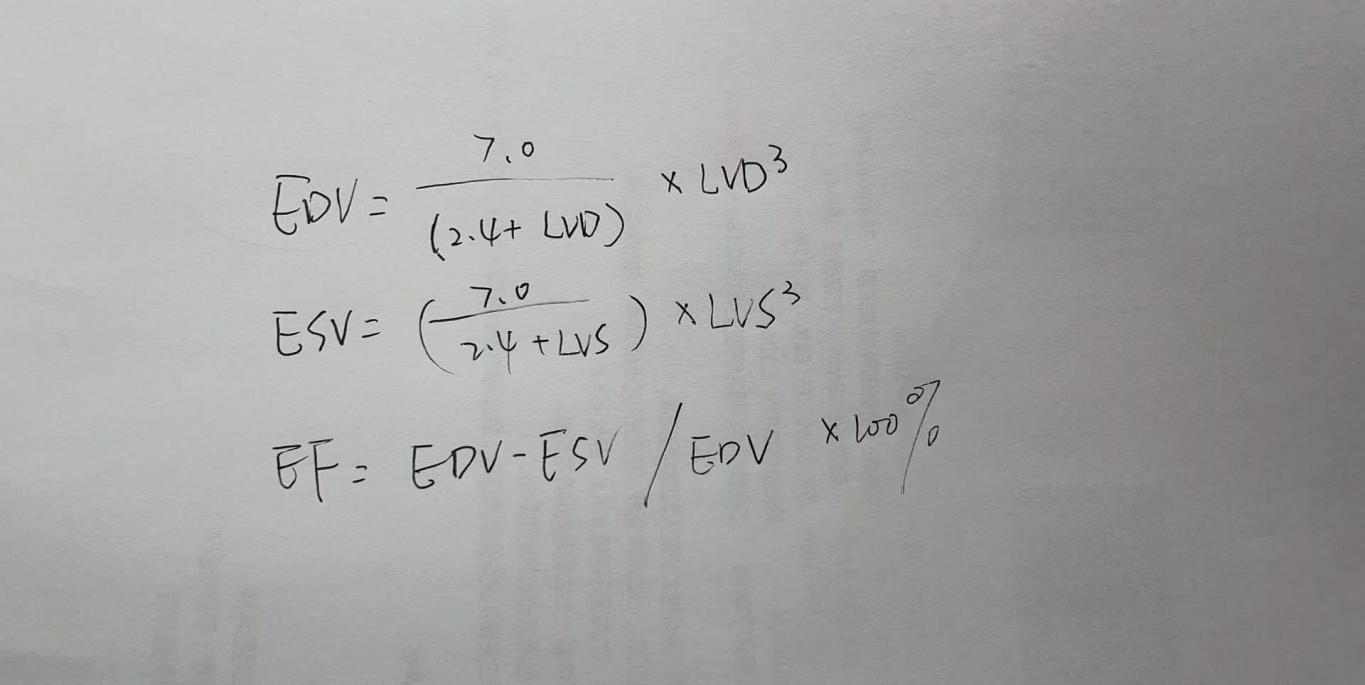 EDV = 7.0 / (2.4 + LVD) × LVD³
ESV = (7.0 / 2.4 + LVS) × LVS³
EF = EDV - ESV / EDV × 100%